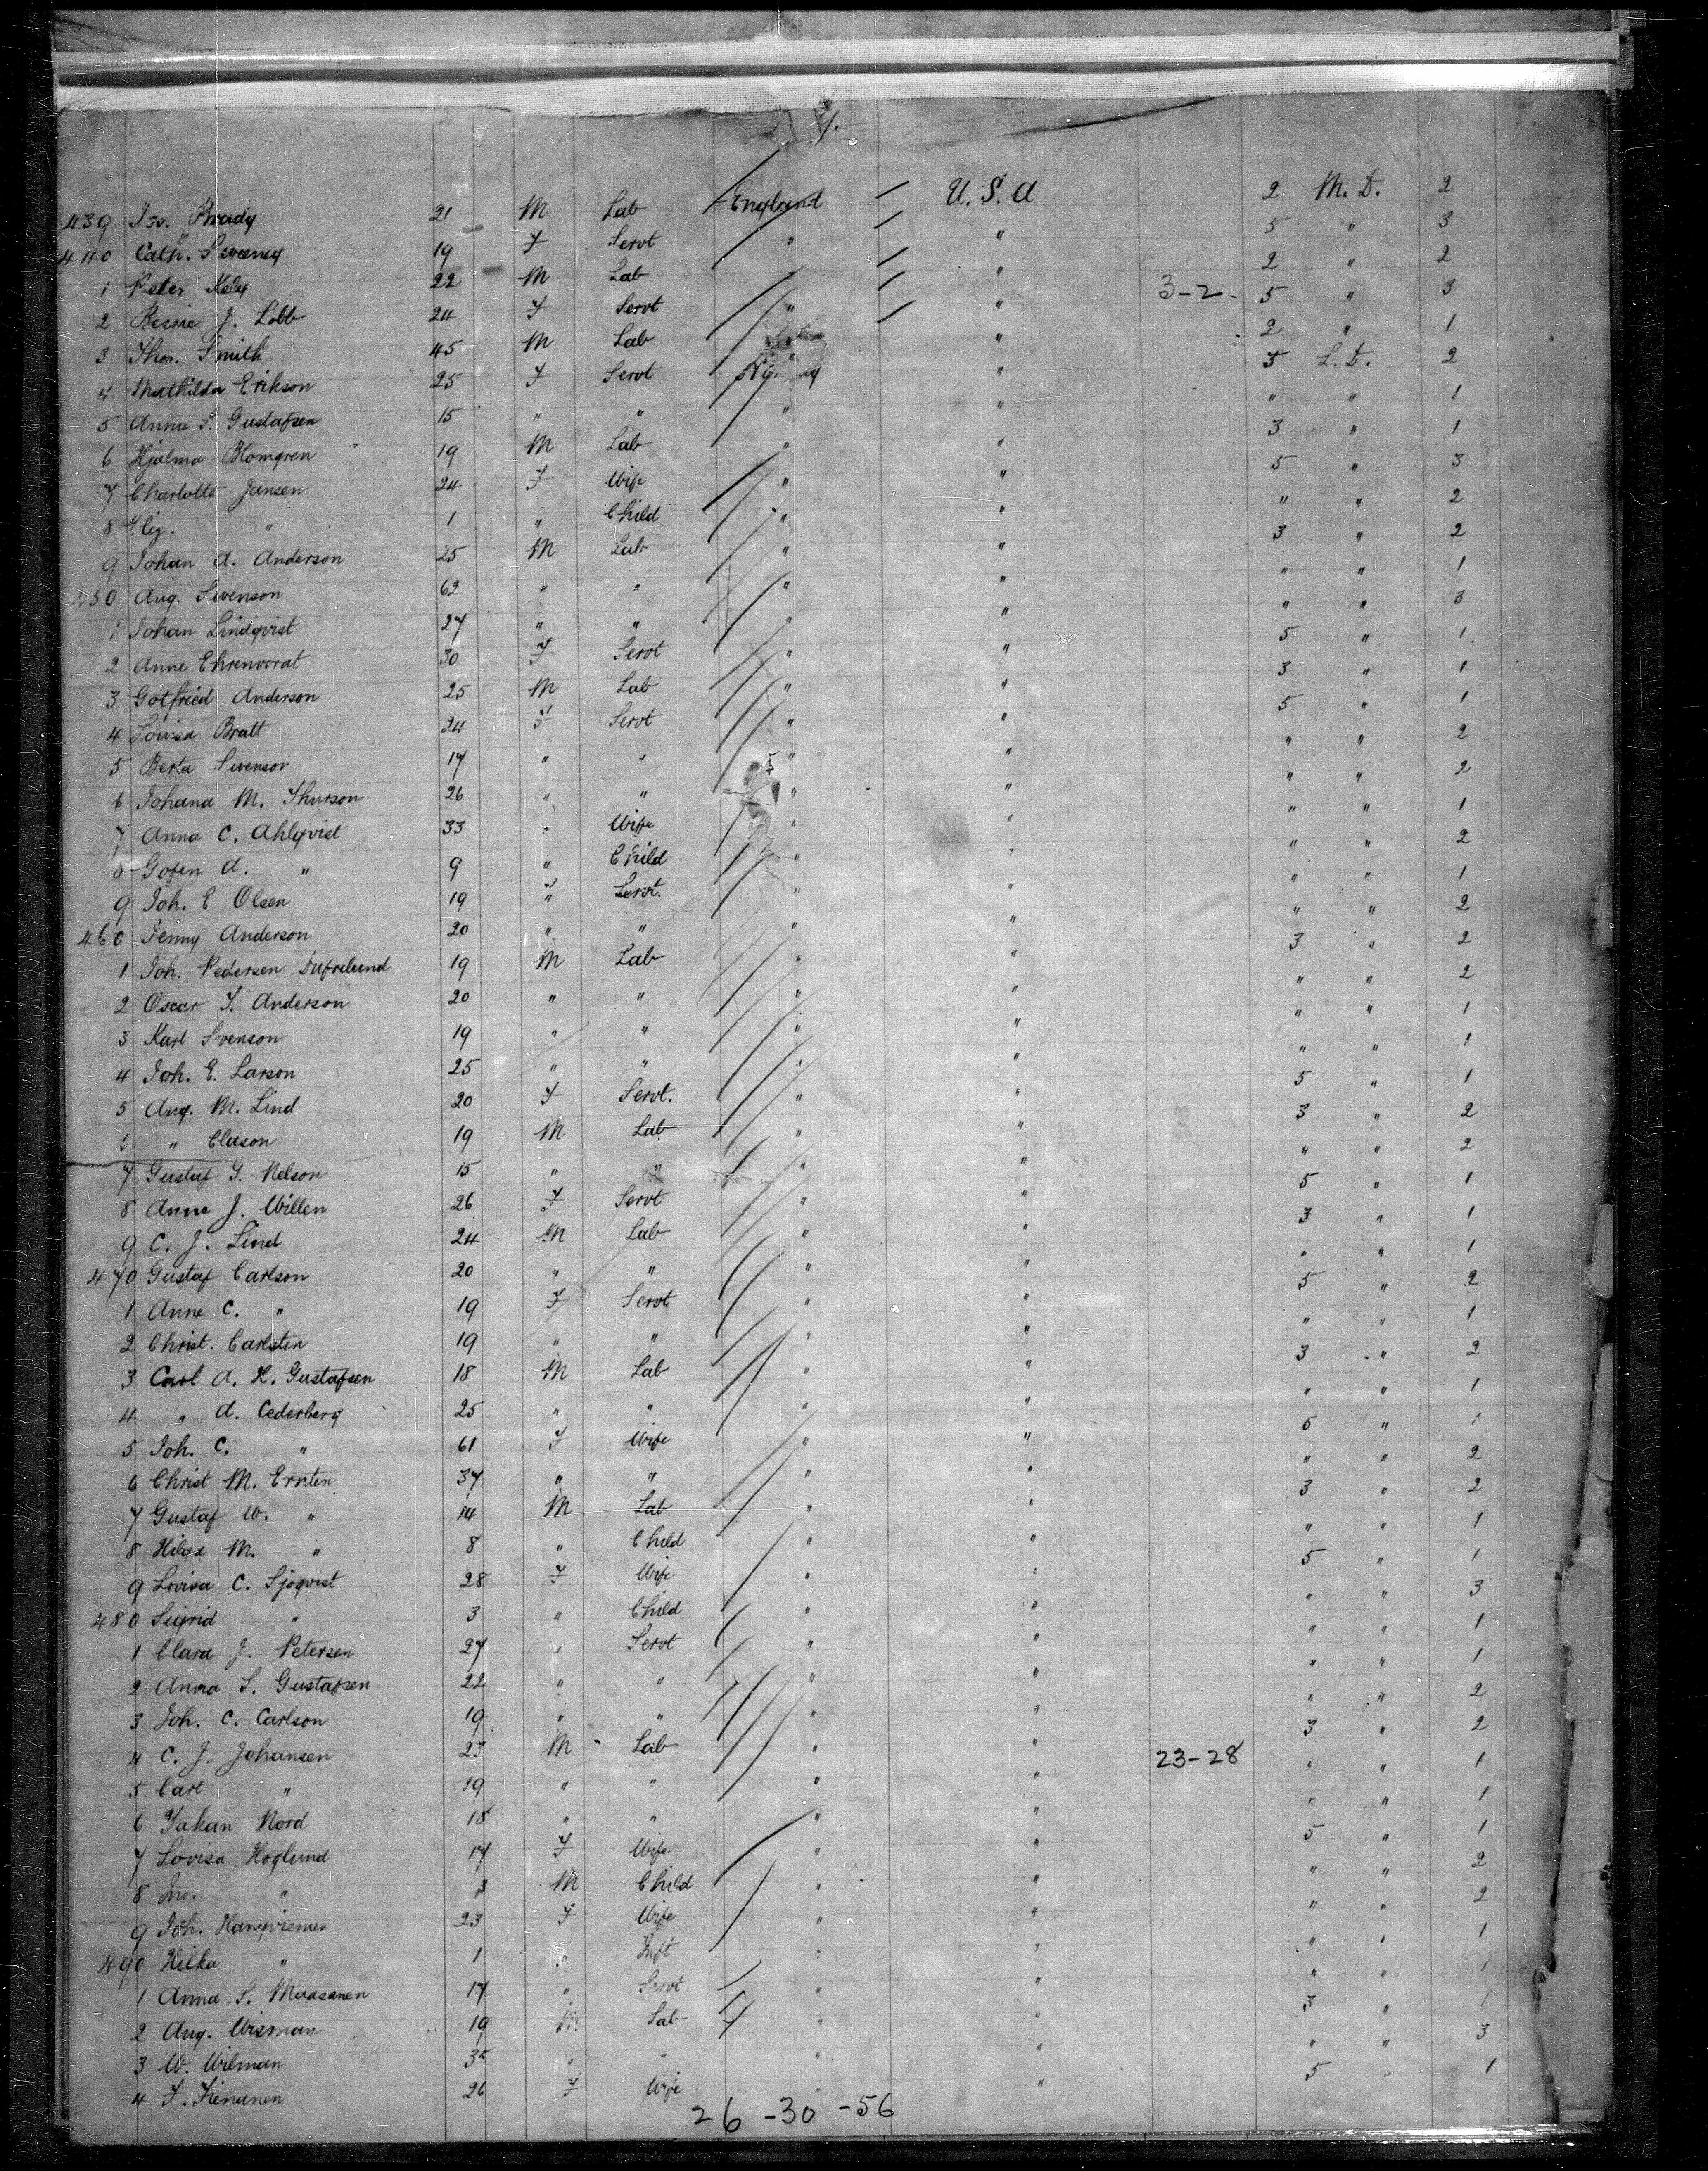 439 Jno. Brady 21 M Lab England U.S.A 2 M.D. 2
440 Cath. Sweeney 19 F Servt " " 5 " 3
1 Peter Kely 22 M Lab " 2 " 2
2 Bessie J. Lobb 24 F Servt " " 3-2- 5 " 3
3 Thos. Smith 45 M Lab " " 2 " 1
4 Mathilda Erikson 25 F Servt " 5 L.D. 2
5 Anna S. Gustafsen 15 " " " " " " 1
6 Hjalma Blomgren 19 M Lab " " 3 " 1
7 Charlotte Jansen 24 F Wife " " 5 " 3
8 " 1 " Child " " " " 2
9 Johan A. Anderson 25 M Lab " " 3 " 2
450 Aug. Swenson 62 " " " " " " 1
1 Johan Lindqvist 27 " " " " " " 3
2 Anne 30 F Servt " " 5 " 1
3 Gotfried Anderson 25 M Lab " " 3 " 1
4 Lovisa Bratt 24 F Servt " " 5 " 1
5 Berta Swenson 17 " " " " " " 2
6 Johana M. Thurson 26 " " " " " " 2
7 Anna C. Ahlqvist 33 " Wife " " " " 1
8 A. " 9 " Child " " " " 2
9 Joh. E Olsen 19 " Servt. " " " " 1
460 Jenny Anderson 20 " " " " " " 2
1 Joh. Pedersen 19 M Lab " " 3 " 2
2 Oscar F. Anderson 20 " " " " " " 2
3 Karl Svenson 19 " " " " " " 1
4 Joh. E. Larson 25 " " " " " " 1
5 Aug. M. Lind 20 F Servt. " " 5 " 1
" Clason 19 M Lab " " 3 " 2
7 Gustaf G. Nelson 15 " " " " " " 2
8 Anna J. Willen 26 F Servt " " 5 " 1
9 C. J. Lind 24 M Lab " " 3 " 1
470 Gustaf Carlson 20 " " " " " " 1
1 Anne C. " 19 F Servt " " 5 " 2
2 Christ. Carlsten 19 " " " " " " 1
3 Carl A. H. Gustafsen 18 M Lab " " 3 " 2
4 " A. Cederberg 25 " " " " " " 1
5 Joh. C. " 61 F Wife " " 5 " 1
6 Christ M. 37 " " " " " " 2
7 Gustaf W. " 14 M Lab " " 3 " 2
8 M. " 8 " Child " " " " 1
9 Lovisa C. Sjoqvist 28 F Wife " " 5 " 1
480 Sigrid " 3 " Child " " " " 3
1 Clara J. Petersen 27 " Servt " " " " 1
2 Anna S. Gustafsen 22 " " " " " " 1
3 Joh. C. Carlson 19 " " " " " " 2
4 C. J. Johansen 23 M Lab " " 3 " 2
5 Carl " 19 " " " " 23-28 " " 1
6 Nord 18 " " " " " " 1
7 Lovisa Hoglund 17 F Wife " " 5 " 1
8 Jno. " M Child " " " " 2
9 Joh. 23 F Wife " " " " 2
490 Hilka " 1 " Inft " " " " 1
1 Anna S. 17 " Servt " " " " 1
2 Aug. Wisman 19 M Lab " " 3 " 1
3 W. Wilman 35 " " " " " " 3
4 26 F Wife " " 5 " 1
26 -30 -56